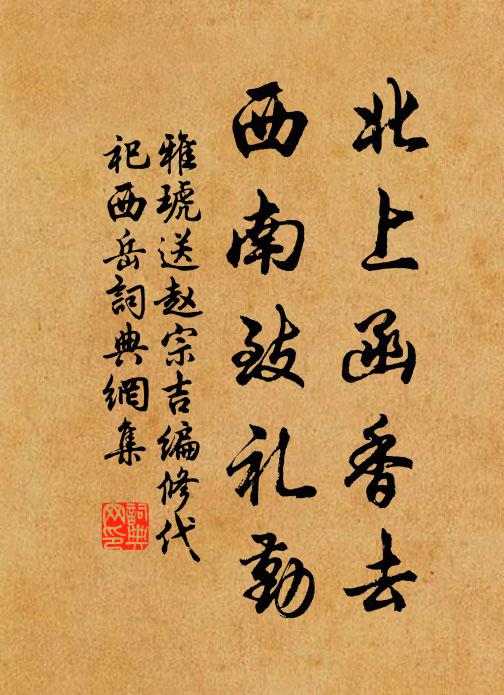 北上函香去
西南致礼勤
雅琥送赵宗吉编修代
祀西岳詞典網集
詞典網印